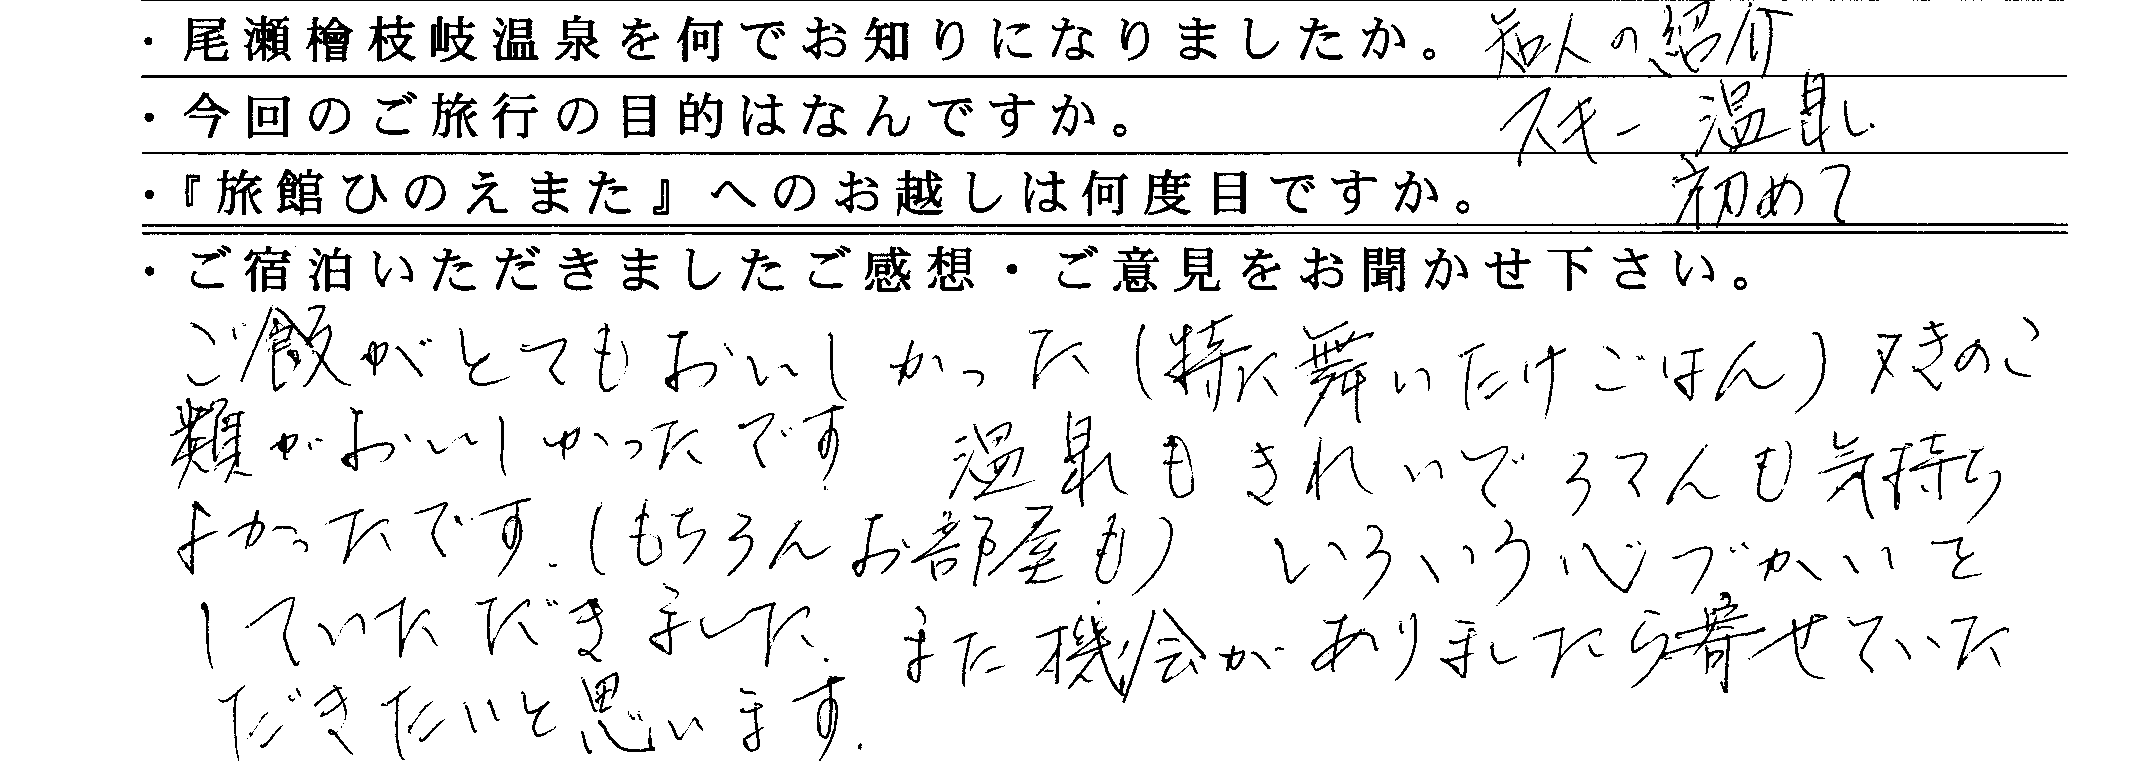 ・尾瀬檜枝岐温泉を何でお知りになりましたか。 知人の紹介
・今回のご旅行の目的はなんですか。 スキー 温泉
・『旅館ひのえまた』へのお越しは何度目ですか。 初めて
・ご宿泊いただきましたご感想・ご意見をお聞かせ下さい。
ご飯がとてもおいしかった(特に舞いたけごはん)又きのこ
類がおいしかったです 温泉もきれいでろてんも気持ち
よかったです.(もちろんお部屋も) いろいろ心づかいを
していただきました. また機会がありましたら寄せていた
だきたいと思います.